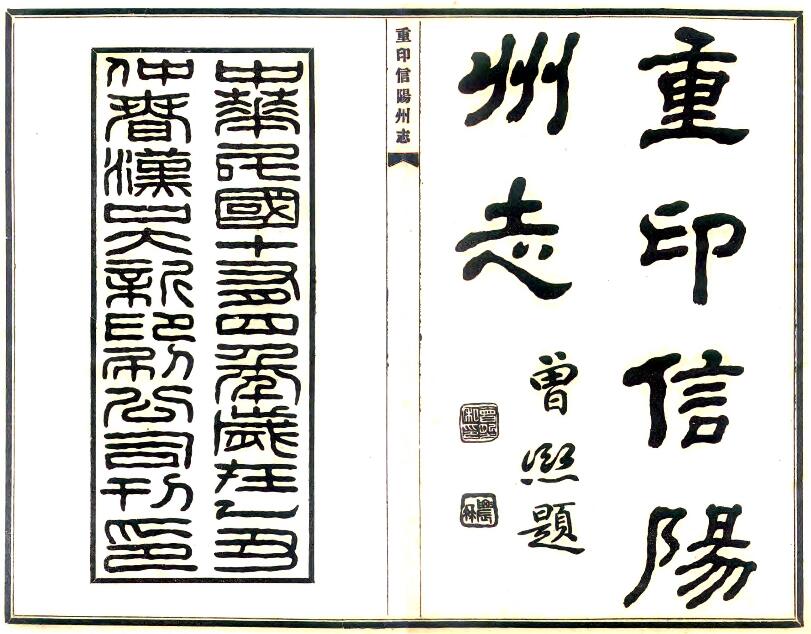 重印信陽
州志
曾熙題
重印信陽州志
中華民國十有四年歲在乙丑
仲春漢口大新印刷公司刊印